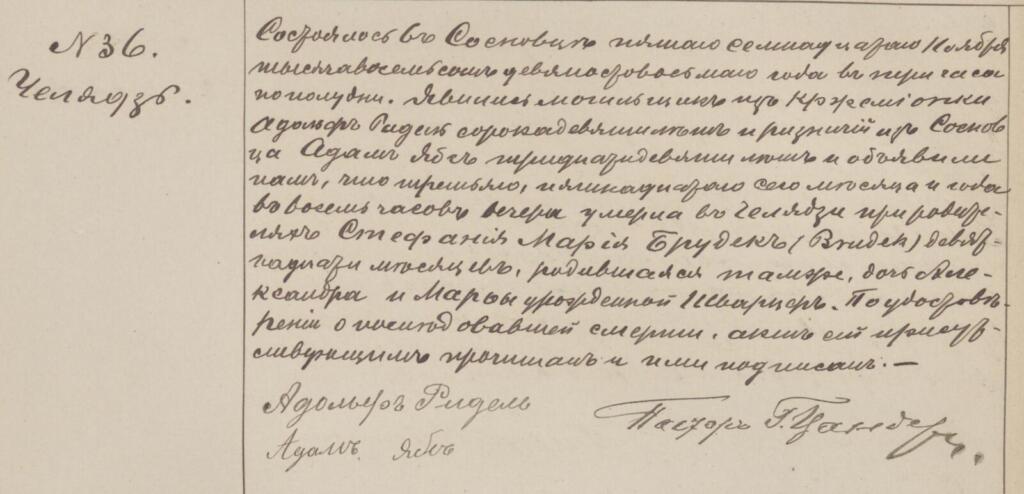 N 36.
Челядзь.
Состоялось въ Сосновицѣ семнадцатаго Ноября
тысяча восемьсотъ девяностовосьмаго года въ три часа
по полудни. Явились могильщикъ изъ
Адольфъ Ридель сорокадевятилѣтъ и ризничій изъ Соснов
ца Адамъ Ябсъ тридцатидевятилѣтъ и объявили
намъ, что третьяго, пятнадцатаго сего мѣсяца и года
въ восемь часовъ вечера умерла въ Челядзи при родите-
ляхъ Стефанія Марія Брудекъ (Brudek) девят-
надцати мѣсяцевъ, родившаяся тамже, дочь Але-
ксандра и Марьи урожденной Шварцеръ. По удостовѣ-
реніи о послѣдовавшей смерти, актъ сей присут-
ствующимъ прочитанъ и ими подписанъ. —
Адольфъ Ридель
Адамъ Ябсъ
Пасторъ Г. Цандеръ.